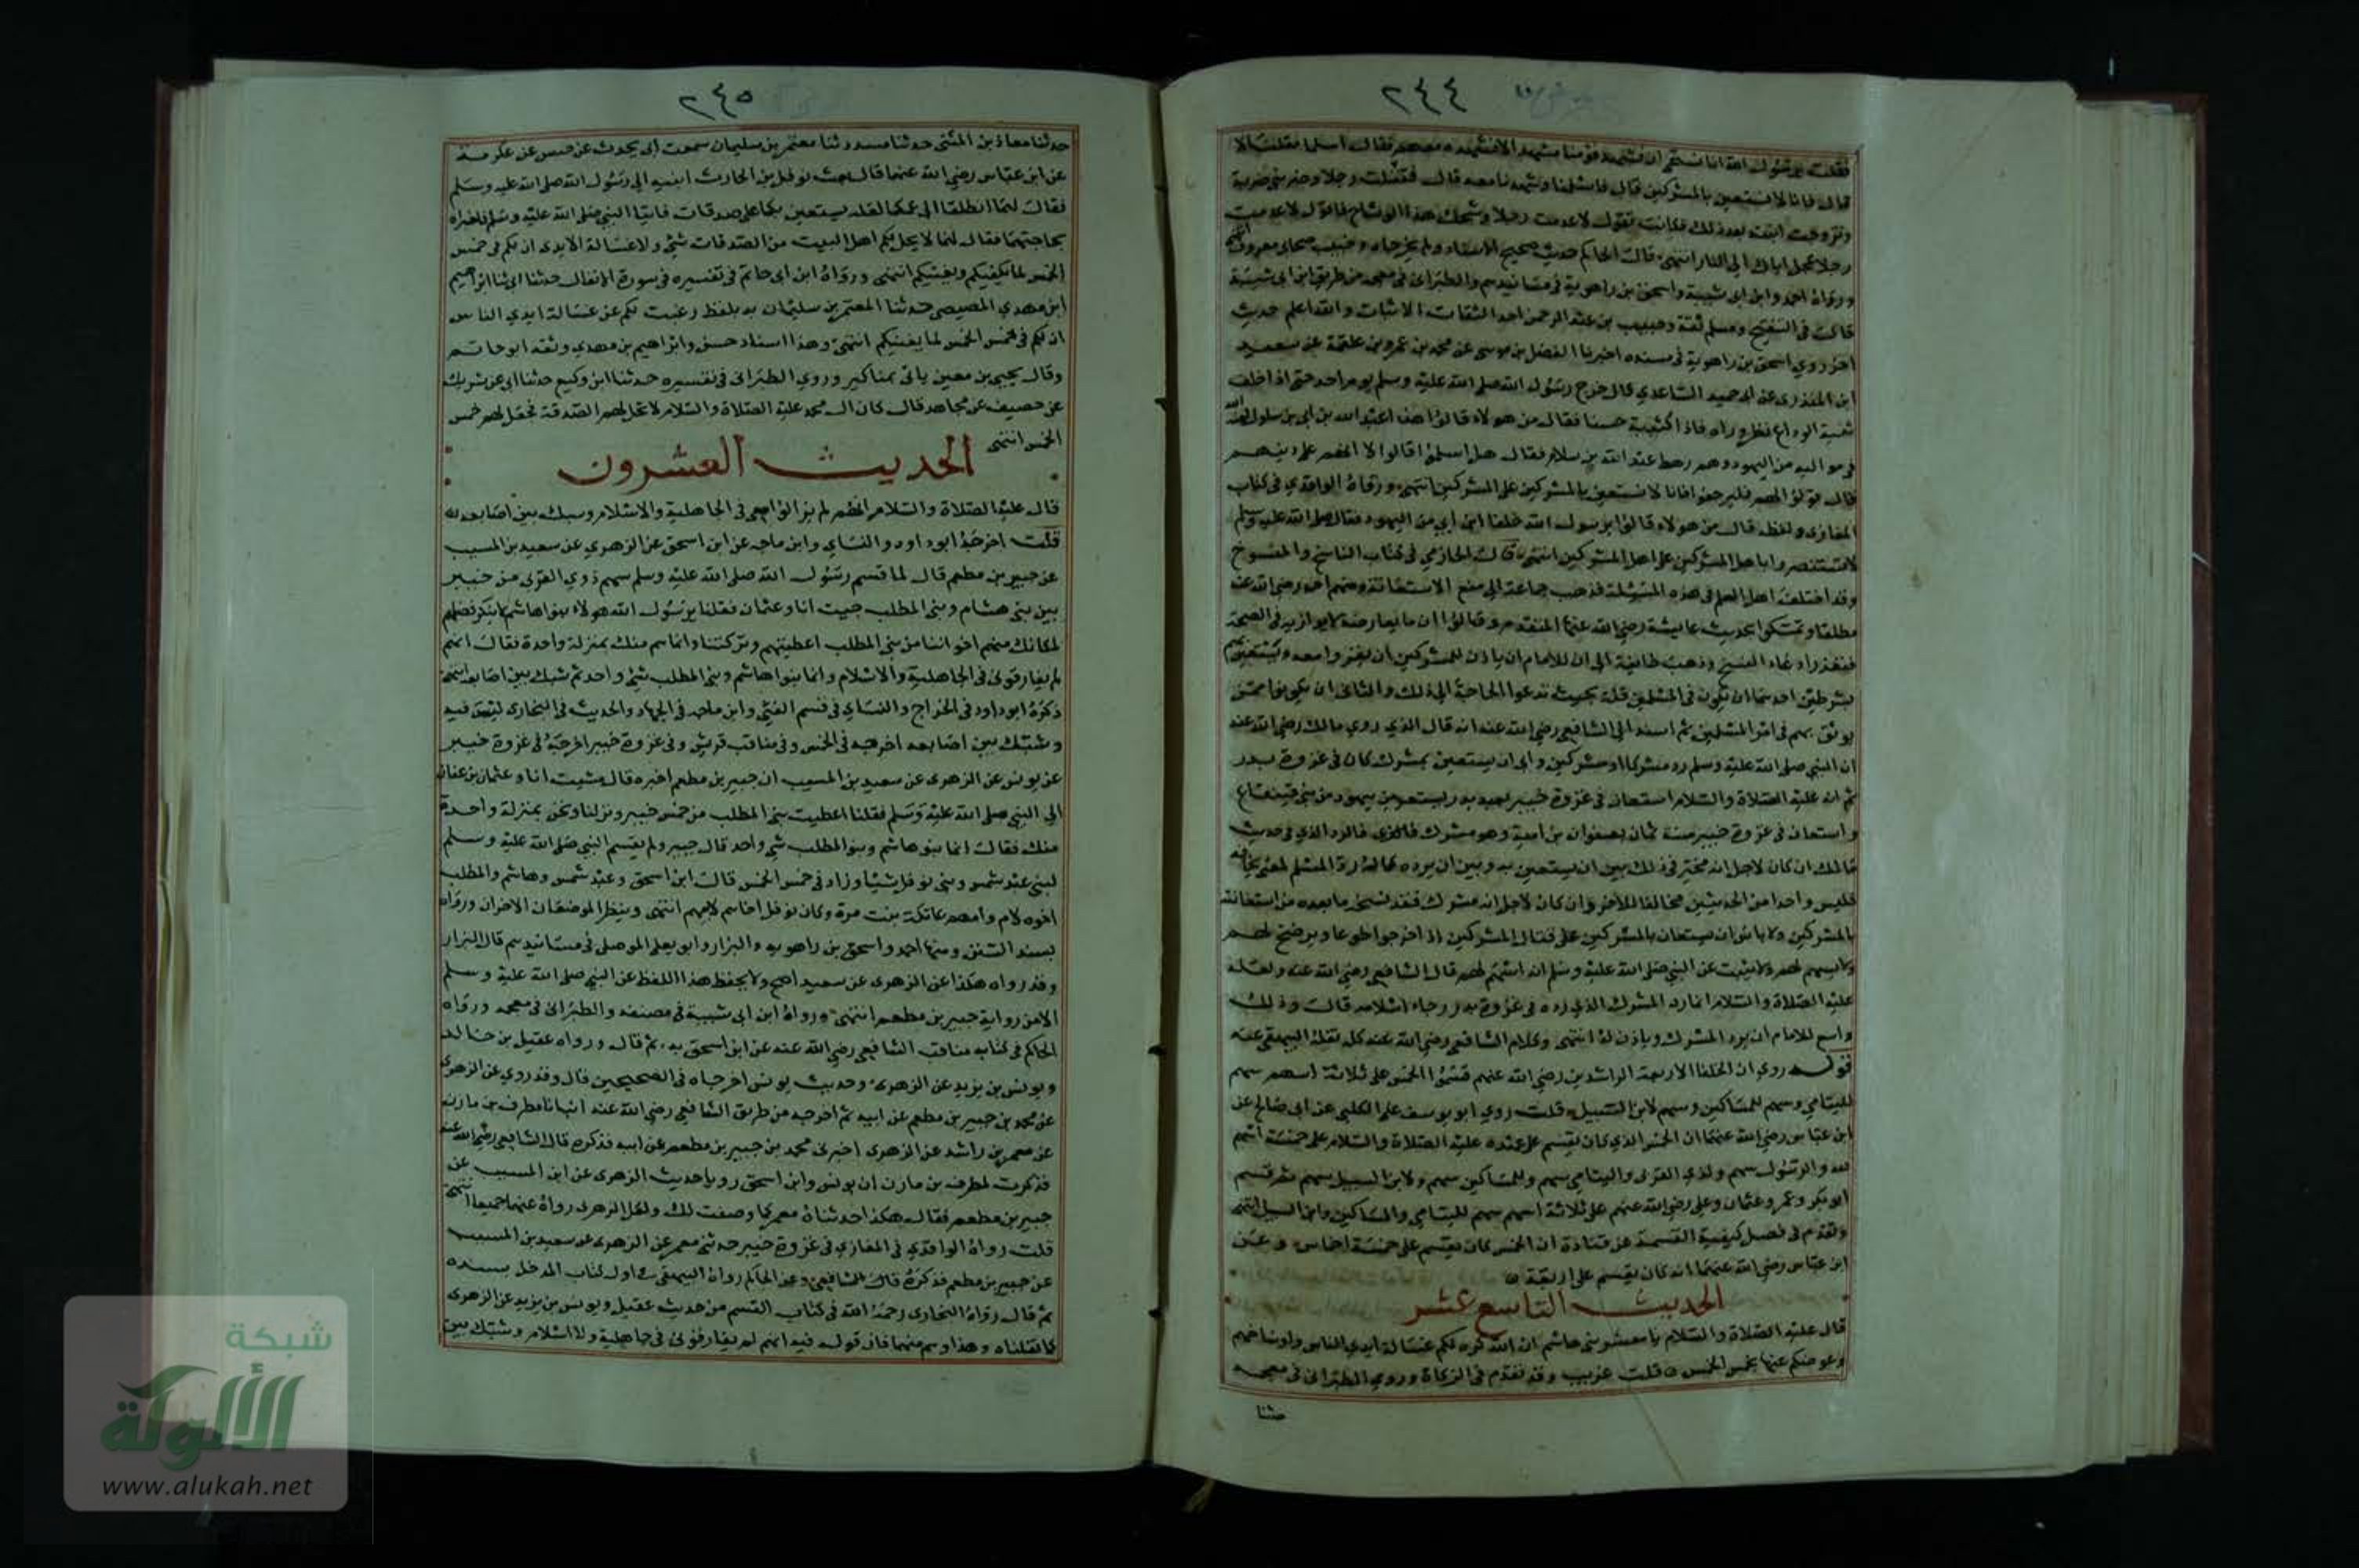 ٢٤٤
فقلت يا رسول الله انا نستحي ان يشهد قومنا مشهدا لا نشهده معهم فقال اسلما فقلنا لا
قال فانا لا نستعين بالمشركين قال فاسلمنا وشهدنا معه قال فقتلت رجلا وضربني ضربة
وتزوجت ابنته بعد ذلك فكانت تقول لا عدمت رجلا وشحك هذا الوشاح فاقول لا عدمت
رجلا عجل اباك الى النار انتهى قال الحاكم حديث صحيح الاسناد ولم يخرجاه وخبيب صحابي معروف انتهى
ورواه احمد وابن ابي شيبة واسحق بن راهوية في مسانيدهم والطبراني في معجمه من طريق ابن ابي شيبة
قال في التنقيح ومسلم ثقة وخبيب بن عبد الرحمن احد الثقات الاثبات والله اعلم حديث
اخر روي اسحق بن راهوية في مسنده اخبرنا الفضل بن موسى عن محمد بن عمرو بن علقمة عن سعيد
ابن المنذر عن ابي حميد الساعدي قال خرج رسول الله صلى الله عليه وسلم يوم احد حتى اذا خلف
ثنية الوداع نظر وراه فاذا كتيبة حسنا فقال من هولاء قالوا هذا عبد الله بن ابي بن سلول
في مواليه من اليهود وهم رهط عبد الله بن سلام فقال هل اسلموا قالوا لا انهم على دينهم
قال قولوا لهم فليرجعوا فانا لا نستعين بالمشركين على المشركين انتهى ورواه الواقدي في كتاب
المغازي ولفظه قال من هولاء قالوا يا رسول الله حلفا ابن ابي من اليهود فقال صلى الله عليه وسلم
لا تستنصروا باهل الشرك على اهل الشرك انتهى قال الحازمي في كتاب الناسخ والمنسوخ
وقد اختلف اهل العلم في هذه المسئلة فذهب جماعة الى منع الاستعانة ومنهم احمد رضي الله عنه
مطلقا وتمسكوا بحديث عايشة رضي الله عنها المتقدم وقالوا ان ما يعارضه لا يوازيه في الصحة
فتعذر ادعاء النسخ وذهبت طائفة الى ان للامام ان ياذن للمشركين ان يغزوا معه ويستعين بهم
بشرطين احدهما ان يكون في المسلمين قلة بحيث تدعوا الحاجة الى ذلك والثاني ان يكونوا ممن
يوثق بهم في امر المسلمين ثم اسند الى الشافعي رضي الله عنه انه قال الذي روي مالك رضي الله عنه
ان النبي صلى الله عليه وسلم رد مشركا او مشركين وابى ان يستعين بمشرك كان في غزوة بدر
ثم انه عليه الصلاة والسلام استعان في غزوة خيبر بعد بدر بيهود من بني قينقاع
واستعان في غزوة حنين سنة ثمان بصفوان بن امية وهو مشرك فالرد الذي في حديث
مالك ان كان لاجل انه مخير في ذلك بين ان يستعين به وبين ان يرده كما له رد المسلم لمعنى يخافه
فليس واحدا من الحديثين مخالفا للاخر وان كان لاجل انه مشرك فقد نسخه ما بعده من استعانته
بالمشركين ولا باس ان يستعان بالمشركين على قتال المشركين اذا خرجوا طوعا ويرضخ لهم
ولا يسهم لهم ولا يثبت عن النبي صلى الله عليه وسلم انه اسهم لهم قال الشافعي رضي الله عنه ولعله
عليه الصلاة والسلام انما رد المشرك الذي رده في غزوة بدر رجاء اسلامه قال وذلك
واسع للامام ان يرد المشرك وياذن له انتهى وكلام الشافعي رضي الله عنه كله نقله البيهقي عنه
قوله روي ان الخلفا الاربعة الراشدين رضي الله عنهم قسموا الخمس على ثلاثة اسهم سهم
لليتامي وسهم للمساكين وسهم لابن السبيل قلت روي ابو يوسف عن الكلبي عن ابي صالح عن
ابن عباس رضي الله عنهما ان الخمس الذي كان يقسم على عهده عليه الصلاة والسلام على خمسة اسهم
لله والرسول سهم ولذي القربى واليتامي سهم وللمساكين سهم ولابن السبيل سهم ثم قسم
ابو بكر وعمر وعثمان وعلي رضي الله عنهم على ثلاثة اسهم سهم لليتامي والمساكين وابن السبيل انتهى
وتقدم في فصل كيفية القسمة عن قتادة ان الخمس كان يقسم على خمسة اخماس وعن
ابن عباس رضي الله عنهما انه كان يقسم على اربعة
الحديث التاسع عشر
قال عليه الصلاة والسلام يا معشر بني هاشم ان الله كره لكم غسالة ايدي الناس واوساخهم
وعوضكم عنها بخمس الخمس قلت غريب وقد تقدم في الزكاة وروي الطبراني في معجمه
حدثنا
٢٤٥
حدثنا معاذ بن المثنى حدثنا مسدد ثنا معتمر بن سليمان سمعت ابي يحدث عن حنش عن عكرمة
عن ابن عباس رضي الله عنهما قال بعث نوفل بن الحارث ابنيه الى رسول الله صلى الله عليه وسلم
فقال لهما انطلقا الى عمكما لعله يستعين بكما على صدقات فاتيا النبي صلى الله عليه وسلم فاخبراه
بحاجتهما فقال لهما لا يحل لكم اهل البيت من الصدقات شي ولا غسالة الايدي ان لكم في خمس
الخمس لما يكفيكم ويغنيكم انتهى ورواه ابن ابي حاتم في تفسيره في سورة الانفال حدثنا ابي ثنا ابراهيم
ابن مهدي المصيصي حدثنا المعتمر بن سليمان به بلفظ رغبت لكم عن غسالة ايدي الناس
ان لكم في خمس الخمس لما يغنيكم انتهى وهذا اسناد حسن وابراهيم بن مهدي وثقه ابو حاتم
وقال يحيى بن معين ياتي بمناكير وروي الطبراني في تفسيره حدثنا ابن وكيع حدثنا ابي عن شريك
عن خصيف عن مجاهد قال كان ال محمد عليه الصلاة والسلام لا تحل لهم الصدقة فجعل لهم خمس
الخمس انتهى
الحديث العشرون
قال عليه الصلاة والسلام انهم لم يزالوا معي في الجاهلية والاسلام وشبك بين اصابعه
قلت اخرجه ابو داود والنساي وابن ماجه عن ابن اسحق عن الزهري عن سعيد بن المسيب
عن جبير بن مطعم قال لما قسم رسول الله صلى الله عليه وسلم سهم ذوي القربى من خيبر
بين بني هشام وبني المطلب جيت انا وعثمان فقلنا يا رسول الله هولاء بنوا هاشم لا ينكر فضلهم
لمكانك منهم اخواننا من بني المطلب اعطيتهم وتركتنا وانما هم منك بمنزلة واحدة فقال انهم
لم يفارقوني في الجاهلية والاسلام وانما بنوا هاشم وبني المطلب شي واحد ثم شبك بين اصابعه انتهى
ذكره ابو داود في الخراج والنساي في قسم الفئ وابن ماجه في الجهاد والحديث في البخاري ليس فيه
وشبك بين اصابعه اخرجه في الخمس وفي مناقب قريش وفي غزوة خيبر اخرجه في غزوة خيبر
عن يونس عن الزهري عن سعيد بن المسيب ان جبير بن مطعم اخبره قال مشيت انا وعثمان بن عفان
الى النبي صلى الله عليه وسلم فقلنا اعطيت بني المطلب من خمس خيبر وتركتنا ونحن بمنزلة واحدة
منك فقال انما بنو هاشم وبنو المطلب شي واحد قال جبير ولم يقسم النبي صلى الله عليه وسلم
لبني عبد شمس وبني نوفل شيئا وزاد في خمس الخمس قال ابن اسحق وعبد شمس وهاشم والمطلب
اخوه لام وامهم عاتكة بنت مرة وكان نوفل اخاهم لابيهم انتهى وينظر الموضعان الاخران ورواه
بسند السنن ومنها احمد واسحق بن راهويه والبزار وابو يعلى الموصلي في مسانيدهم قال البزار
وقد رواه هكذا عن الزهري عن سعيد اصح ولا يحفظ هذا اللفظ عن النبي صلى الله عليه وسلم
الا من رواية جبير بن مطعم انتهى ورواه ابن ابي شيبة في مصنفه والطبراني في معجمه ورواه
الحاكم في كتابه مناقب الشافعي رضي الله عنه عن ابن اسحق به ثم قال ورواه عقيل بن خالد
ويونس بن يزيد عن الزهري وحديث يونس اخرجاه في الصحيحين قال وقد روي عن الزهري
عن محمد بن جبير بن مطعم عن ابيه ثم اخرجه من طريق الشافعي رضي الله عنه انبانا مطرف بن مازن
عن معمر بن راشد عن الزهري اخبرني محمد بن جبير بن مطعم عن ابيه فذكره قال الشافعي رضي الله عنه
فذكرت لمطرف بن مازن ان يونس وابن اسحق رويا حديث الزهري عن ابن المسيب عن
جبير بن مطعم فقال هكذا حدثناه معمر كما وصفت لك ولعل الزهري رواه عنهما جميعا انتهى
قلت رواه الواقدي في المغازي في غزوة خيبر حدثني معمر عن الزهري عن سعيد بن المسيب
عن جبير بن مطعم فذكره قال الشافعي وعن الحاكم رواه البيهقي في اول كتاب المدخل بسنده
ثم قال رواه البخاري رحمه الله في كتاب القسم من حديث عقيل ويونس بن يزيد عن الزهري
كما نقلناه وهذا وهم منهما فان قوله فيه انهم لم يفارقوني في جاهلية ولا اسلام وشبك بين
شبكة
الألوكة
www.alukah.net